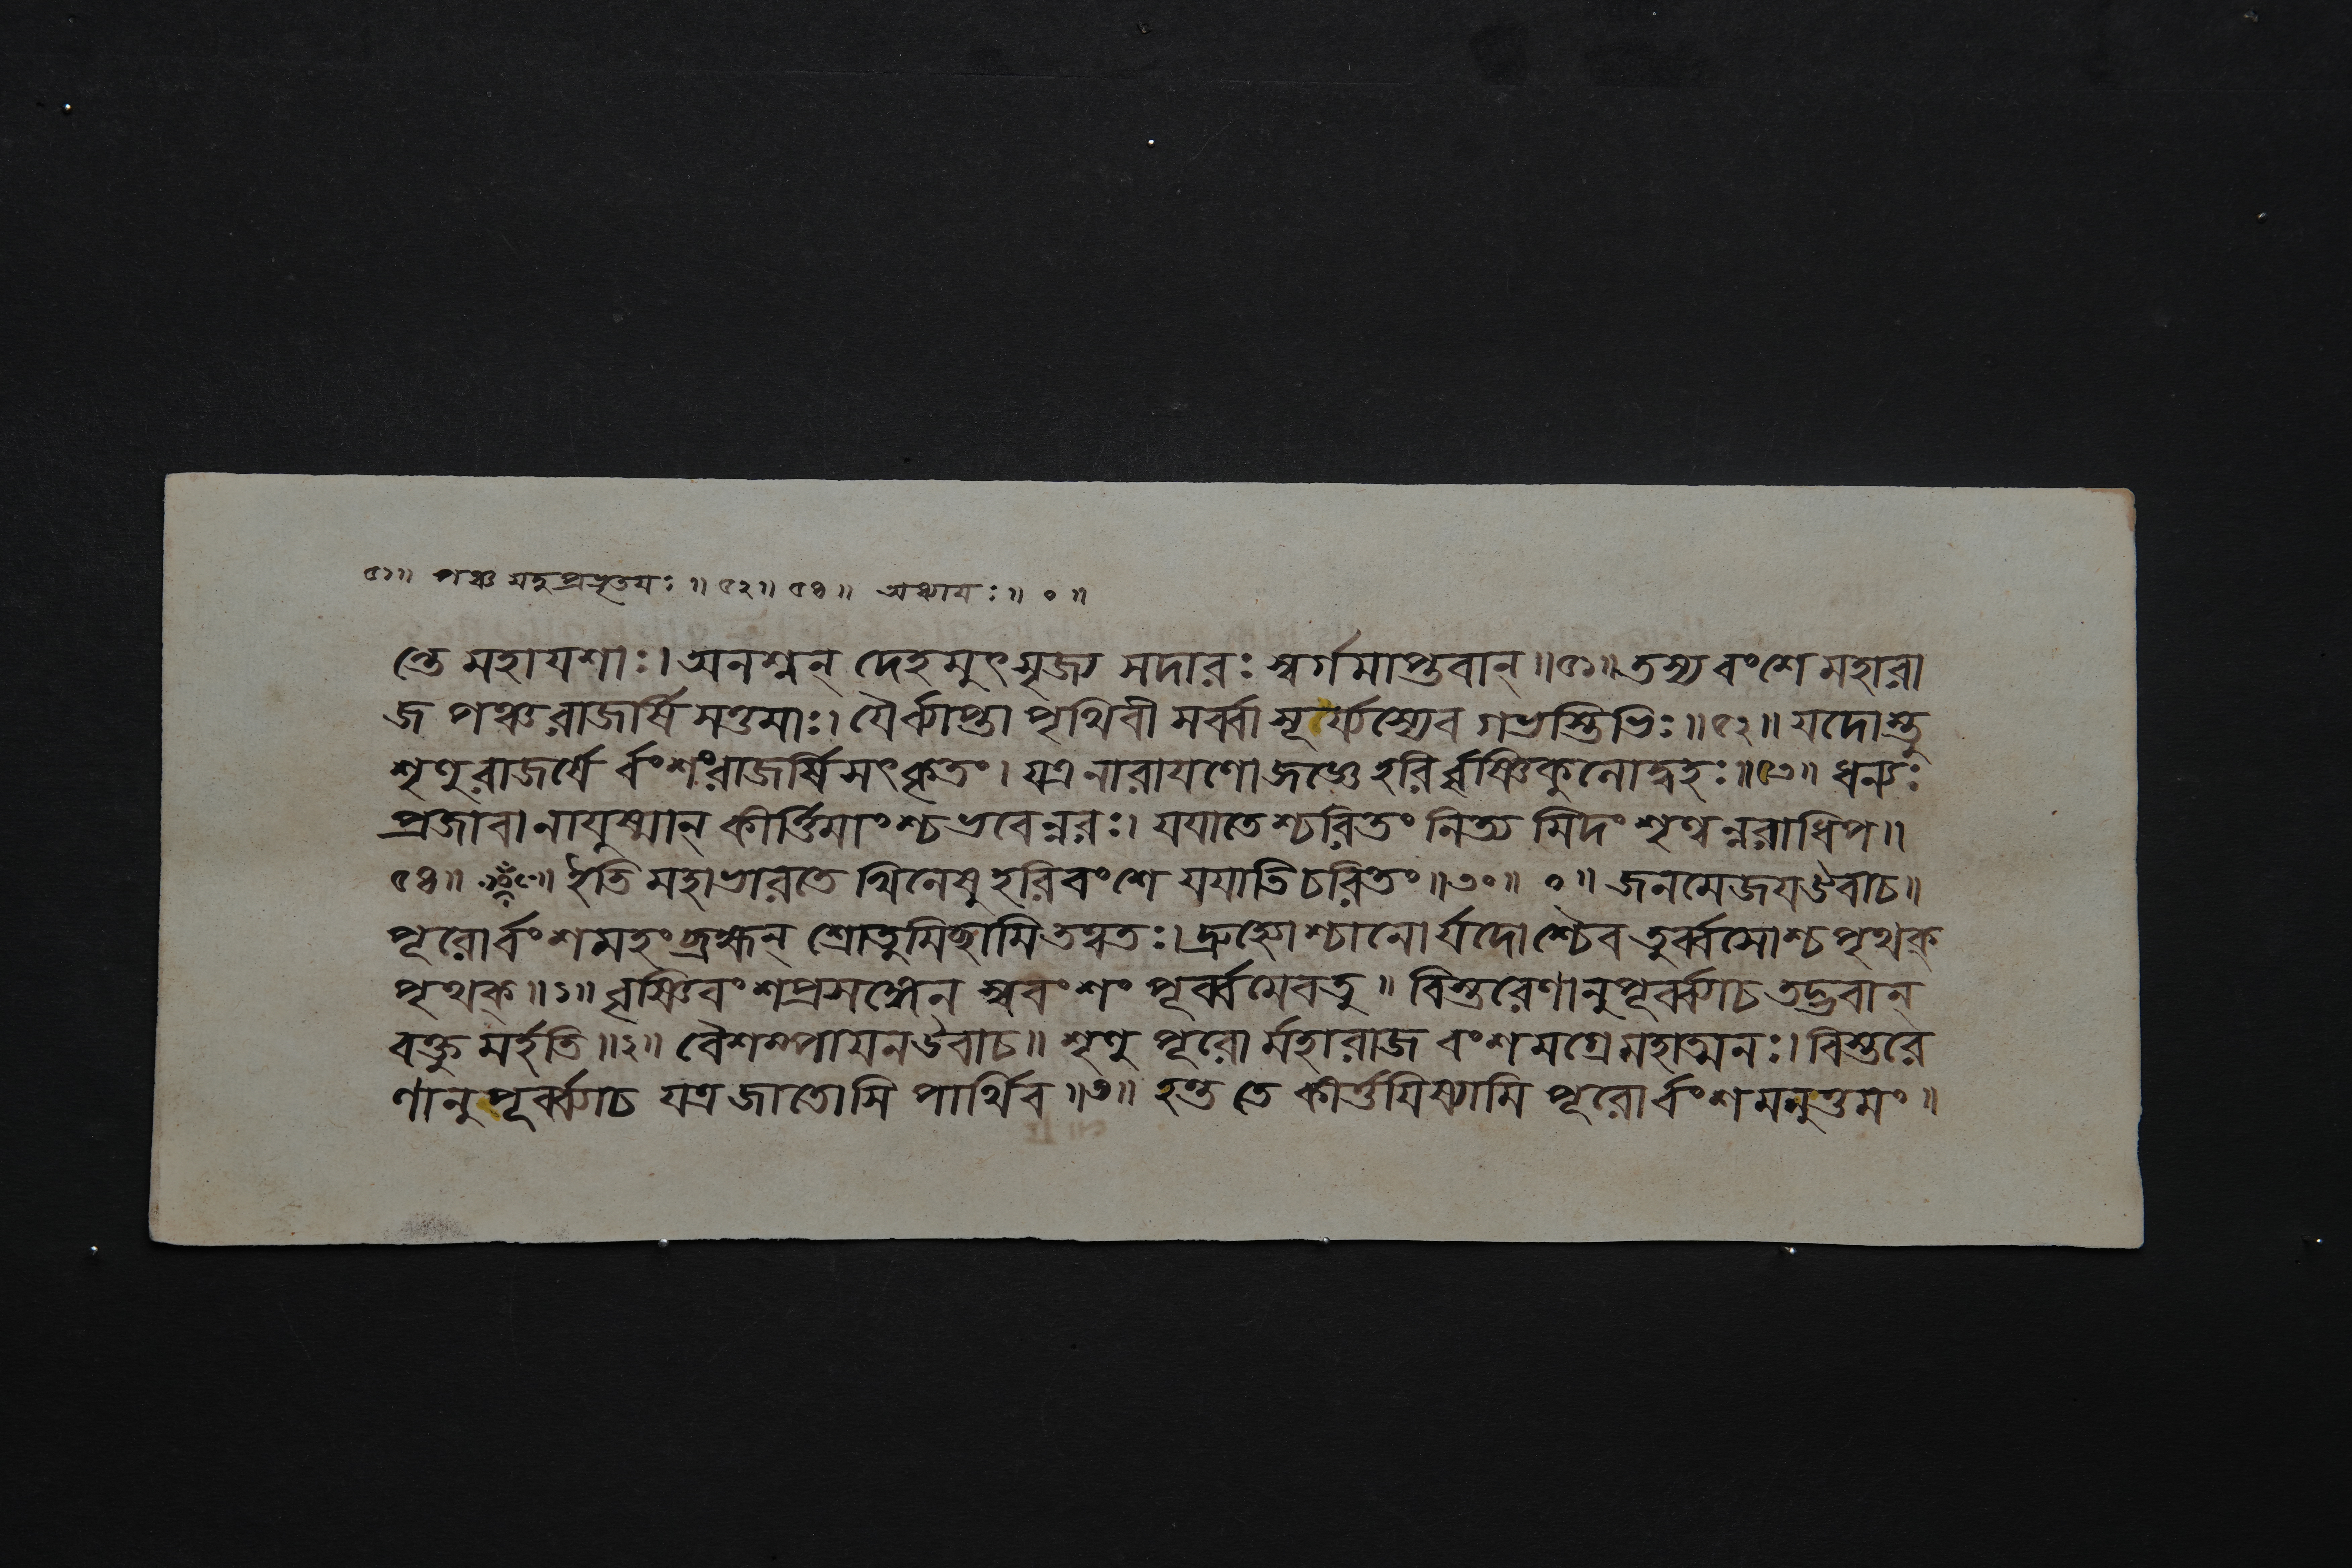 ৫১॥ পঞ্চ যদুপ্রভৃতয়ঃ ॥ ৫২॥ ৫৪ ॥ অধ্যায়ঃ ॥ ০ ॥
ন্তে মহাযশাঃ। অনশ্নন্ দেহমুৎসৃজ্য সদারঃ স্বর্গমাপ্তবান্ ॥৫১॥ তস্য বংশে মহারা
জ পঞ্চ রাজর্ষি সত্তমাঃ। যৈর্ব্যাপ্তা পৃথিবী সর্ব্বা সূর্য্যস্যেব গভস্তিভিঃ ॥৫২॥ যদোস্তু
শৃণু রাজর্ষে র্বংশং রাজর্ষি সৎকৃতং। যত্র নারায়ণো জজ্ঞে হরি র্বৃষ্ণিকুলোদ্বহঃ ॥৫৩॥ ধন্যঃ
প্রজাবানায়ুষ্মান্ কীর্ত্তিমাংশ্চ ভবেন্নরঃ। যযাতেশ্চরিতং নিত্য মিদং শৃণ্বন্নরাধিপ॥
৫৪॥ ইতি মহাভারতে খিলেষু হরিবংশে যযাতিচরিতং ॥৩০॥ ০॥ জনমেজয়উবাচ॥
পূরোর্বংশমহং ব্রহ্মন্ শ্রোতুমিচ্ছামি তত্ত্বতঃ। দ্রুহ্যোশ্চানো র্যদোশ্চৈব তুর্ব্বসোশ্চ পৃথক্
পৃথক্ ॥১॥ বৃষ্ণিবংশপ্রসঙ্গেন স্ববংশং পূর্ব্বমেবতু ॥ বিস্তরেণানুপূর্ব্ব্যাচ তদ্ভবান্
বক্তু মর্হতি ॥২॥ বৈশম্পায়নউবাচ॥ শৃণু পূরো র্মহারাজ বংশমগ্রে মহাত্মনঃ। বিস্তরে
ণানুপূর্ব্ব্যাচ যত্র জাতোসি পার্থিব ॥৩॥ হন্ত তে কীর্ত্তয়িষ্যামি পূরোর্বংশমনুত্তমং ॥